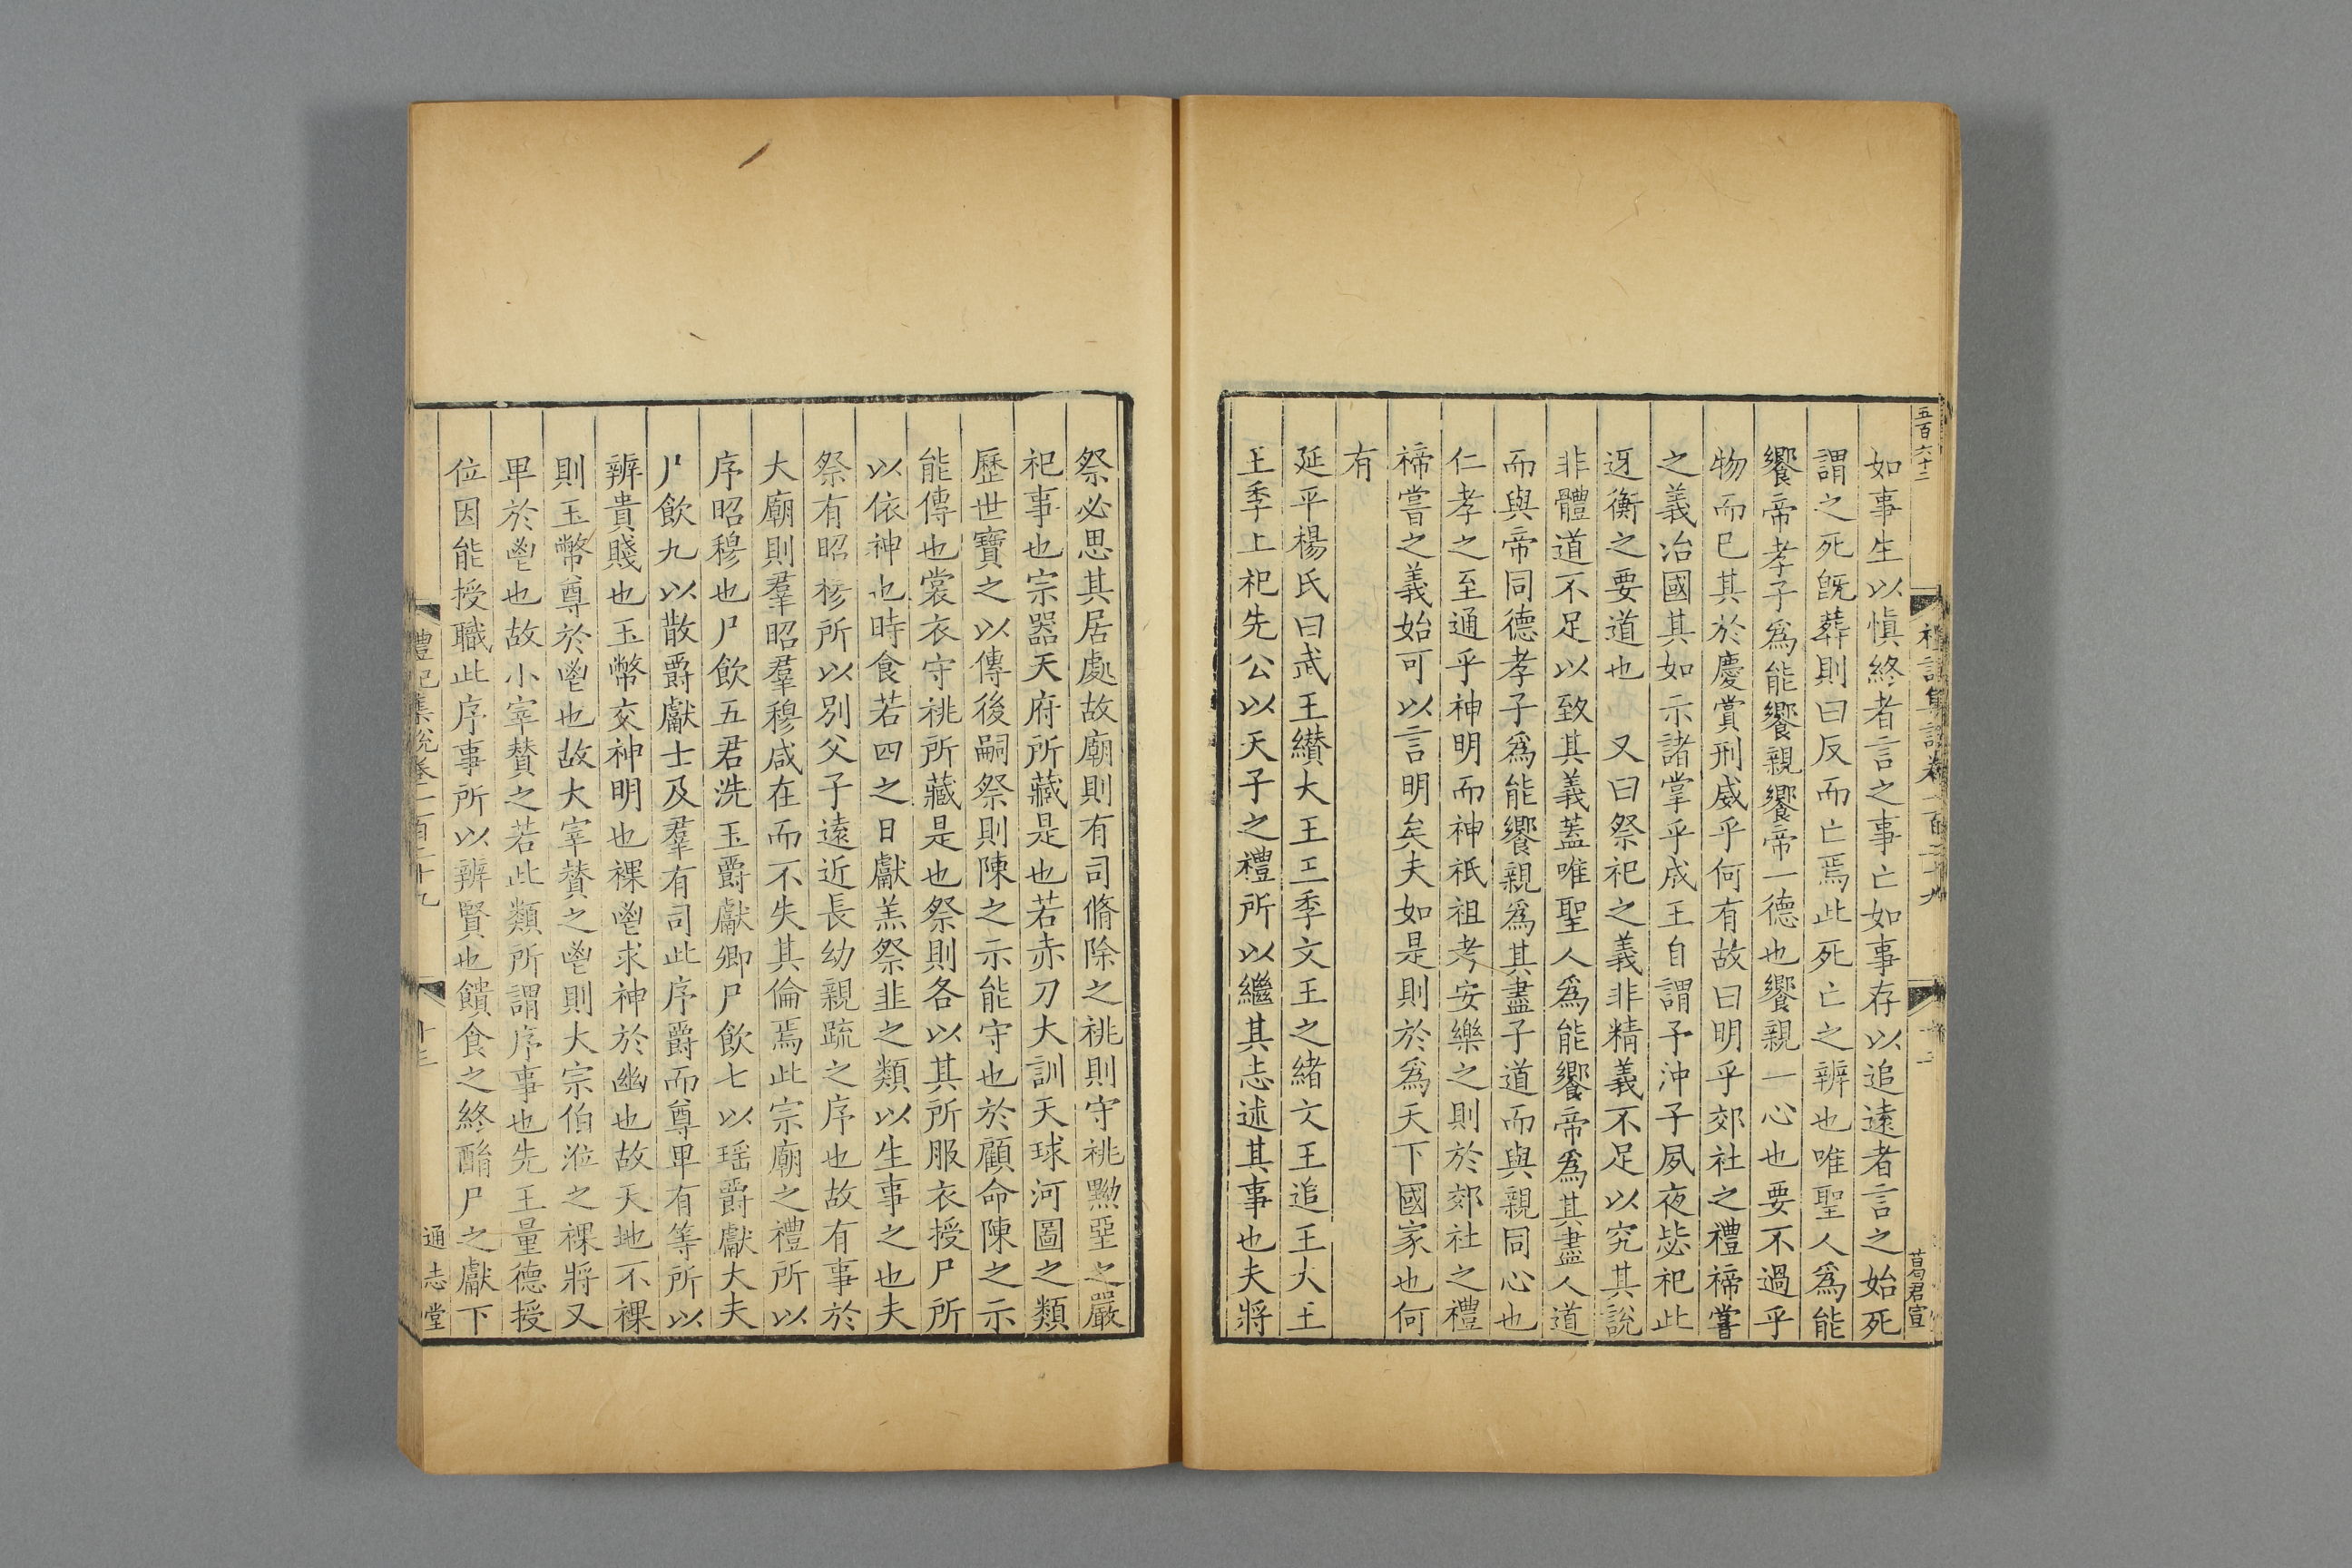 五百六十二
禮記集說卷一百二十九
十二
葛君宣
如事生以愼終者言之事亡如事存以追遠者言之始死
謂之死旣葬則曰反而亡焉此死亡之辨也唯聖人爲能
饗帝孝子爲能饗親饗帝一德也饗親一心也要不過乎
物而已其於慶賞刑威乎何有故曰明乎郊社之禮禘嘗
之義治國其如示諸掌乎成王自謂予沖子夙夜毖祀此
迓衡之要道也 又曰祭祀之義非精義不足以究其說
非體道不足以致其義蓋唯聖人爲能饗帝爲其盡人道
而與帝同德孝子爲能饗親爲其盡子道而與親同心也
仁孝之至通乎神明而神祇祖考安樂之則於郊社之禮
禘嘗之義始可以言明矣夫如是則於爲天下國家也何
有
延平楊氏曰武王纘大王王季文王之緒文王追王大王
王季上祀先公以天子之禮所以繼其志述其事也夫將
祭必思其居處故廟則有司脩除之祧則守祧黝堊之嚴
祀事也宗器天府所藏是也若赤刀大訓天球河圖之類
歷世寶之以傳後嗣祭則陳之示能守也於顧命陳之示
能傳也裳衣守祧所藏是也祭則各以其所服衣授尸所
以依神也時食若四之日獻羔祭韭之類以生事之也夫
祭有昭穆所以別父子遠近長幼親疏之序也故有事於
大廟則羣昭羣穆咸在而不失其倫焉此宗廟之禮所以
序昭穆也尸飮五君洗玉爵獻卿尸飮七以瑤爵獻大夫
尸飮九以散爵獻士及羣有司此序爵而尊卑有等所以
辨貴賤也玉幣交神明也祼鬯求神於幽也故天地不祼
則玉幣尊於鬯也故大宰贊之鬯則大宗伯涖之祼將又
卑於鬯也故小宰贊之若此類所謂序事也先王量德授
位因能授職此序事所以辨賢也饋食之終酳尸之獻下
禮記集說卷一百二十九
十三
通志堂